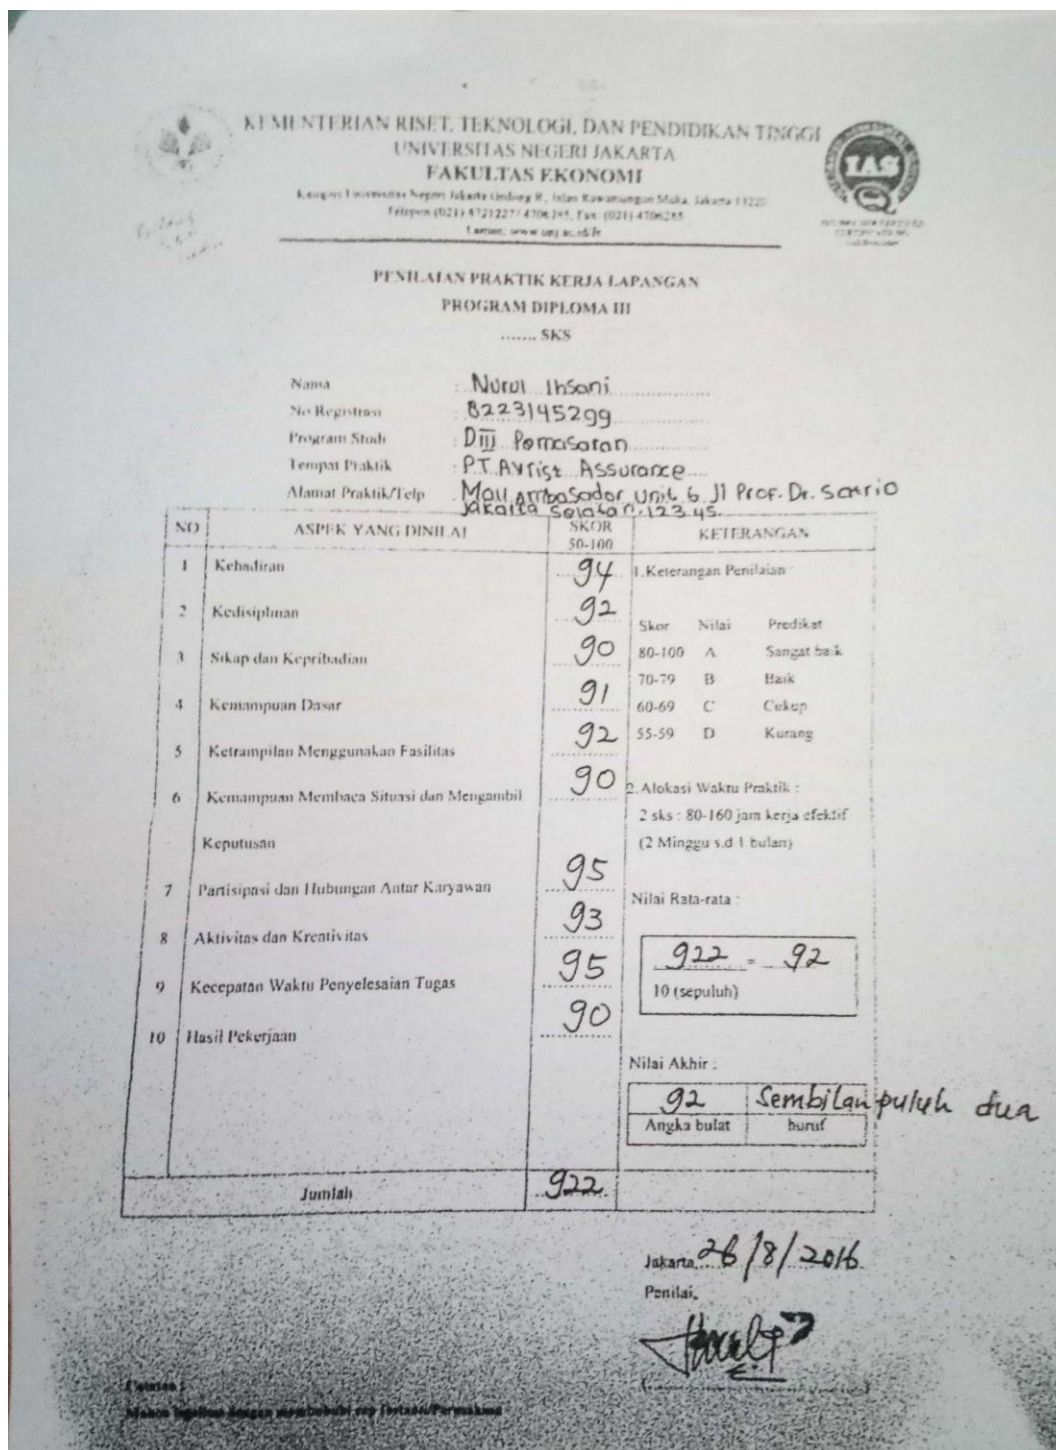 KEMENTERIAN RISET, TEKNOLOGI, DAN PENDIDIKAN TINGGI
UNIVERSITAS NEGERI JAKARTA
FAKULTAS EKONOMI
Kampus Universitas Negeri Jakarta Gedung R, Jalan Rawamangun Muka, Jakarta 13220
Telepon (021) 4721227/ 4706285, Fax. (021) 4706285
Laman: www.unj.ac.id/fe
IAS
PENILAIAN PRAKTIK KERJA LAPANGAN
PROGRAM DIPLOMA III
....... SKS
Nama : Nurul Ihsani
No Registrasi : 8223145299
Program Studi : DIII Pemasaran
Tempat Praktik : PT. Avrist Assurance
Alamat Praktik/Telp : Mall ambasador Unit 6 Jl Prof. Dr. Satrio
Jakarta Selatan. 12345.
NO ASPEK YANG DINILAI SKOR 50-100 KETERANGAN
1 Kehadiran 94 1.Keterangan Penilaian :
2 Kedisiplinan 92
Skor Nilai Predikat
3 Sikap dan Kepribadian 90 80-100 A Sangat baik
70-79 B Baik
4 Kemampuan Dasar 91 60-69 C Cukup
5 Ketrampilan Menggunakan Fasilitas 92 55-59 D Kurang
6 Kemampuan Membaca Situasi dan Mengambil 90 2.Alokasi Waktu Praktik :
2 sks : 80-160 jam kerja efektif
Keputusan (2 Minggu s.d 1 bulan)
7 Partisipasi dan Hubungan Antar Karyawan 95 Nilai Rata-rata :
8 Aktivitas dan Kreativitas 93
922 = 92
9 Kecepatan Waktu Penyelesaian Tugas 95 10 (sepuluh)
10 Hasil Pekerjaan 90
Nilai Akhir :
92 Sembilan puluh dua
Angka bulat huruf
Jumlah 922
Jakarta, 26/8/2016
Penilai,
Catatan :
Mohon legalitas dengan membubuhi cap Instansi/Perusahaan